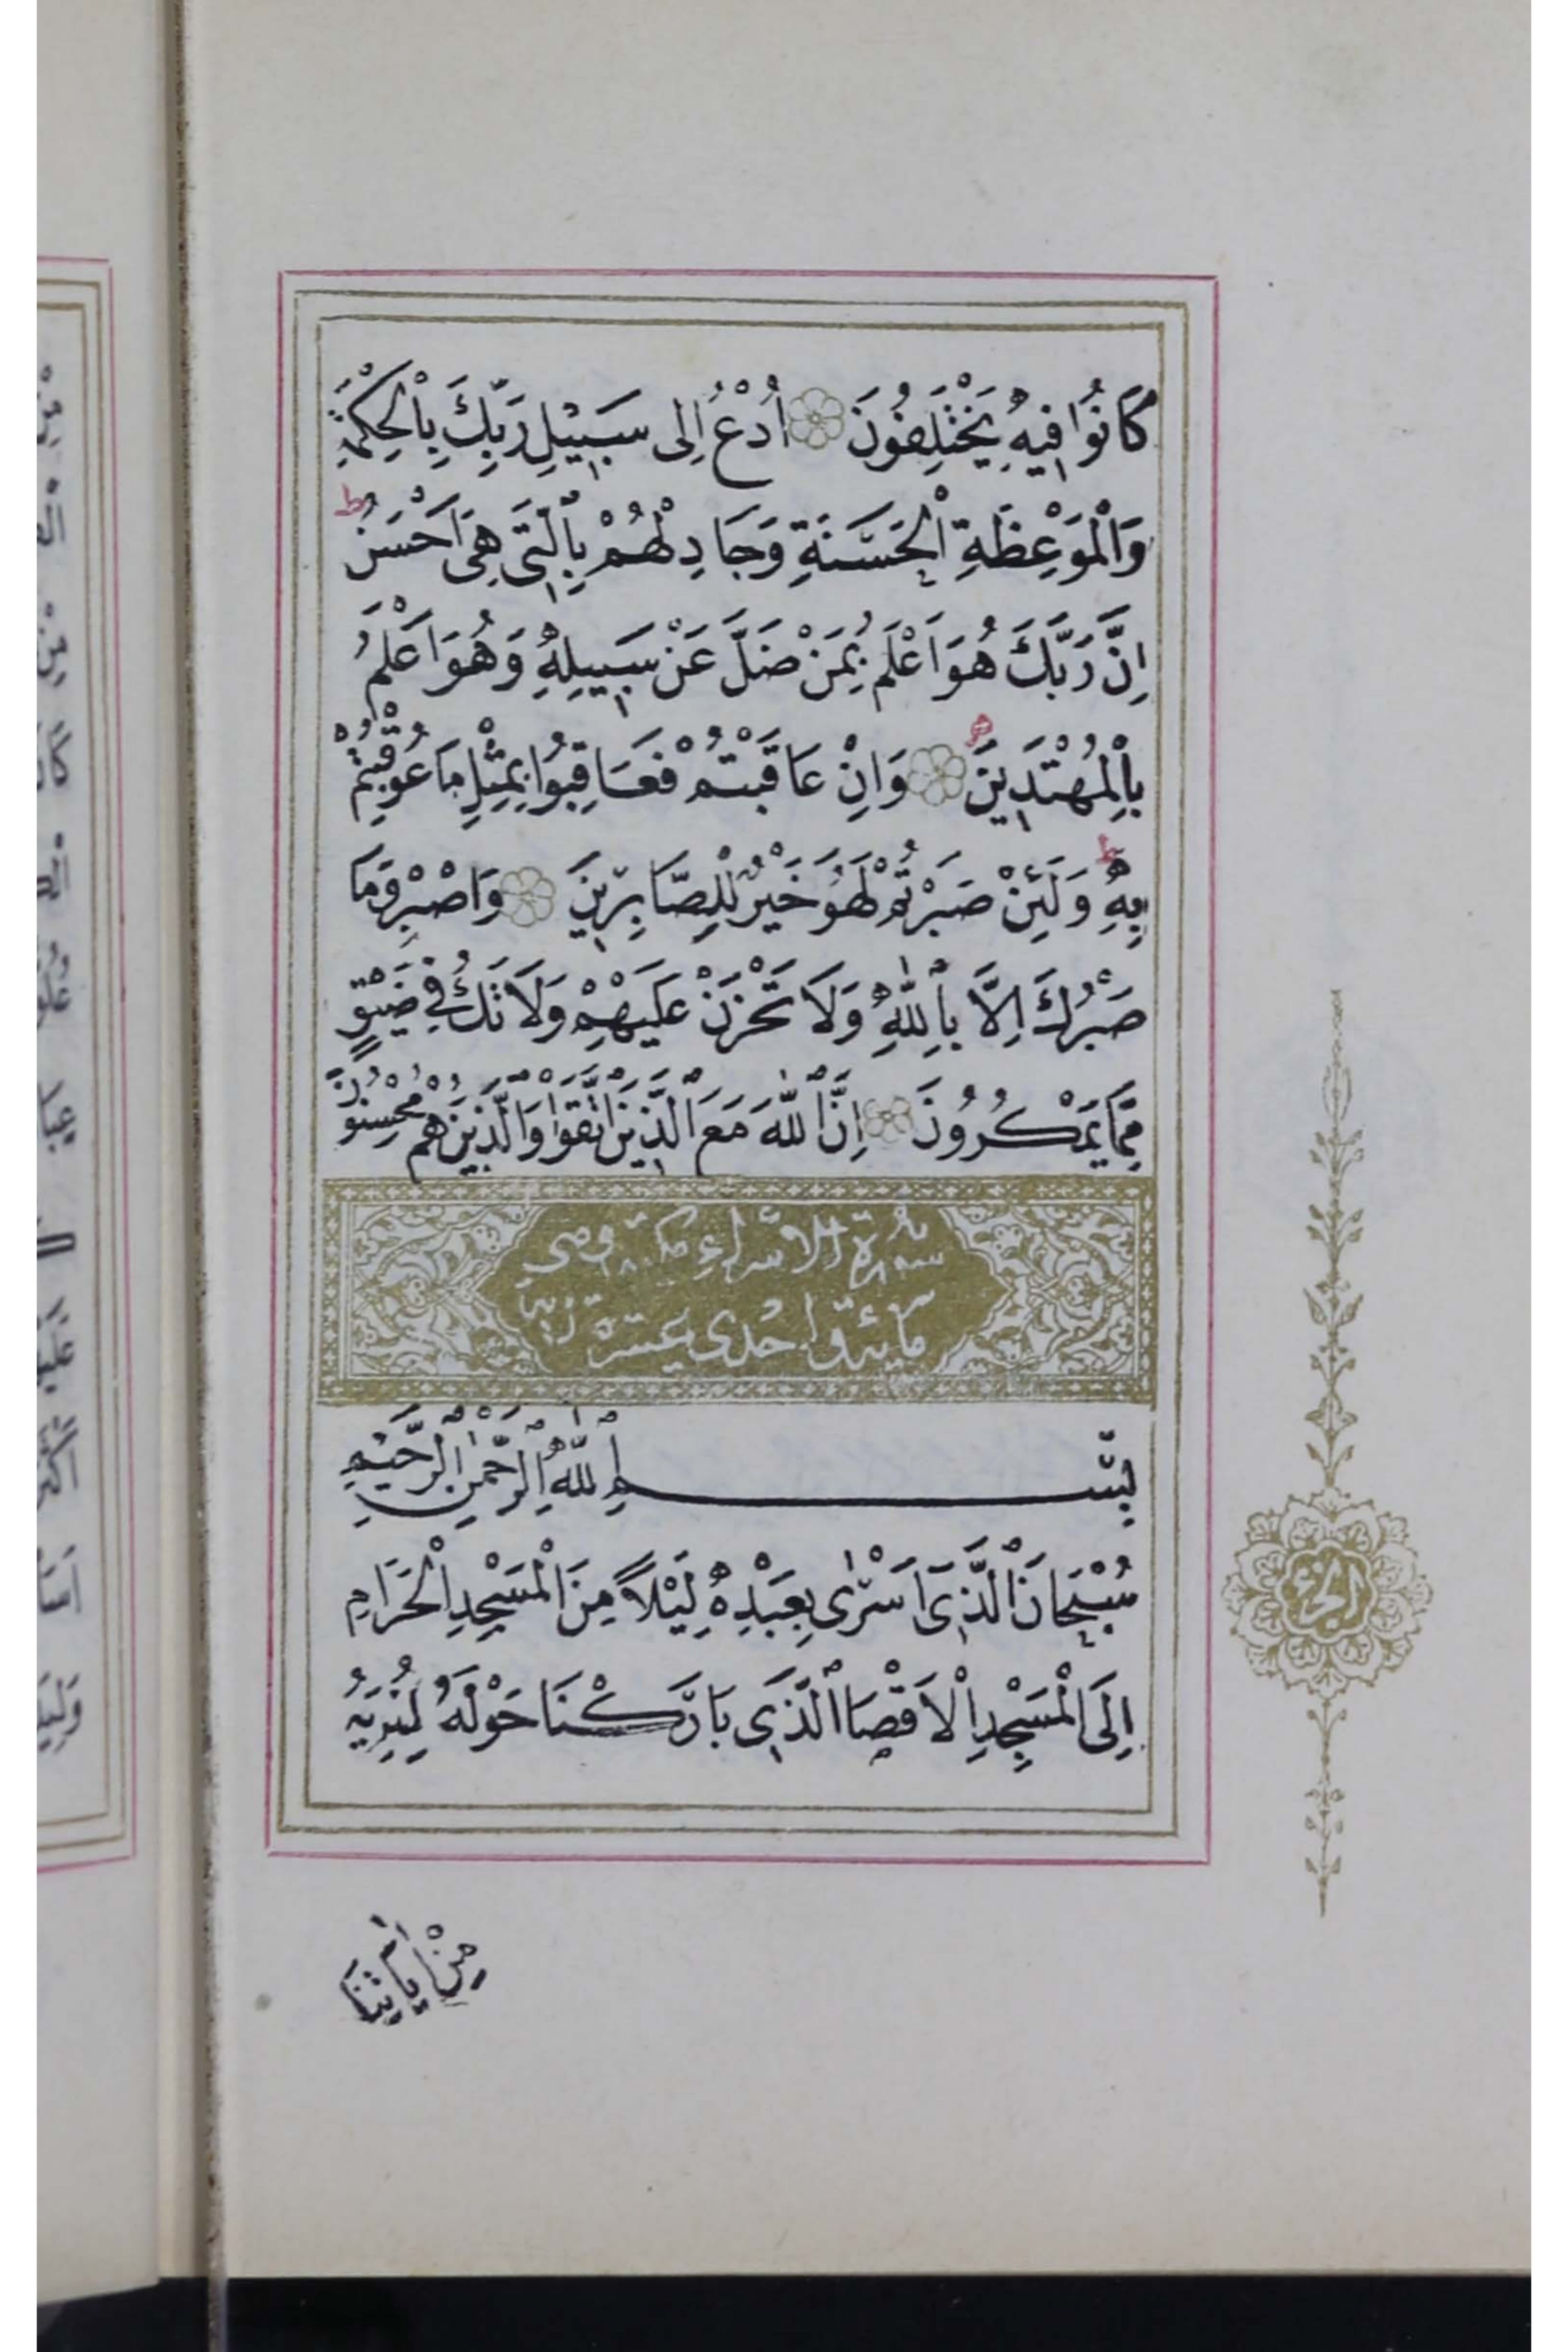 كَانُوا فِيهِ يَخْتَلِفُونَ اُدْعُ اِلٰى سَبِيلِ رَبِّكَ بِالْحِكْمَةِ
وَالْمَوْعِظَةِ الْحَسَنَةِ وَجَادِلْهُمْ بِالَّتِي هِيَ اَحْسَنُ ط
اِنَّ رَبَّكَ هُوَ اَعْلَمُ بِمَنْ ضَلَّ عَنْ سَبِيلِهِ وَهُوَ اَعْلَمُ
بِالْمُهْتَدِينَ وَاِنْ عَاقَبْتُمْ فَعَاقِبُوا بِمِثْلِ مَا عُوقِبْتُمْ
بِهِ ط وَلَئِنْ صَبَرْتُمْ لَهُوَ خَيْرٌ لِلصَّابِرِينَ وَاصْبِرْ وَمَا
صَبْرُكَ اِلَّا بِاللّٰهِ وَلَا تَحْزَنْ عَلَيْهِمْ وَلَا تَكُ فِي ضَيْقٍ
مِمَّا يَمْكُرُونَ اِنَّ اللّٰهَ مَعَ الَّذِينَ اتَّقَوْا وَالَّذِينَ هُمْ مُحْسِنُونَ
سُورَةُ الْاَسْرَاءِ مكية وهي
مائة واحدى عشرة اية
بِسْمِ اللّٰهِ الرَّحْمٰنِ الرَّحِيمِ
سُبْحَانَ الَّذِي اَسْرٰى بِعَبْدِهِ لَيْلًا مِنَ الْمَسْجِدِ الْحَرَامِ
اِلَى الْمَسْجِدِ الْاَقْصَا الَّذِي بَارَكْنَا حَوْلَهُ لِنُرِيَهُ
مِنْ اٰيَاتِنَا
الجزء